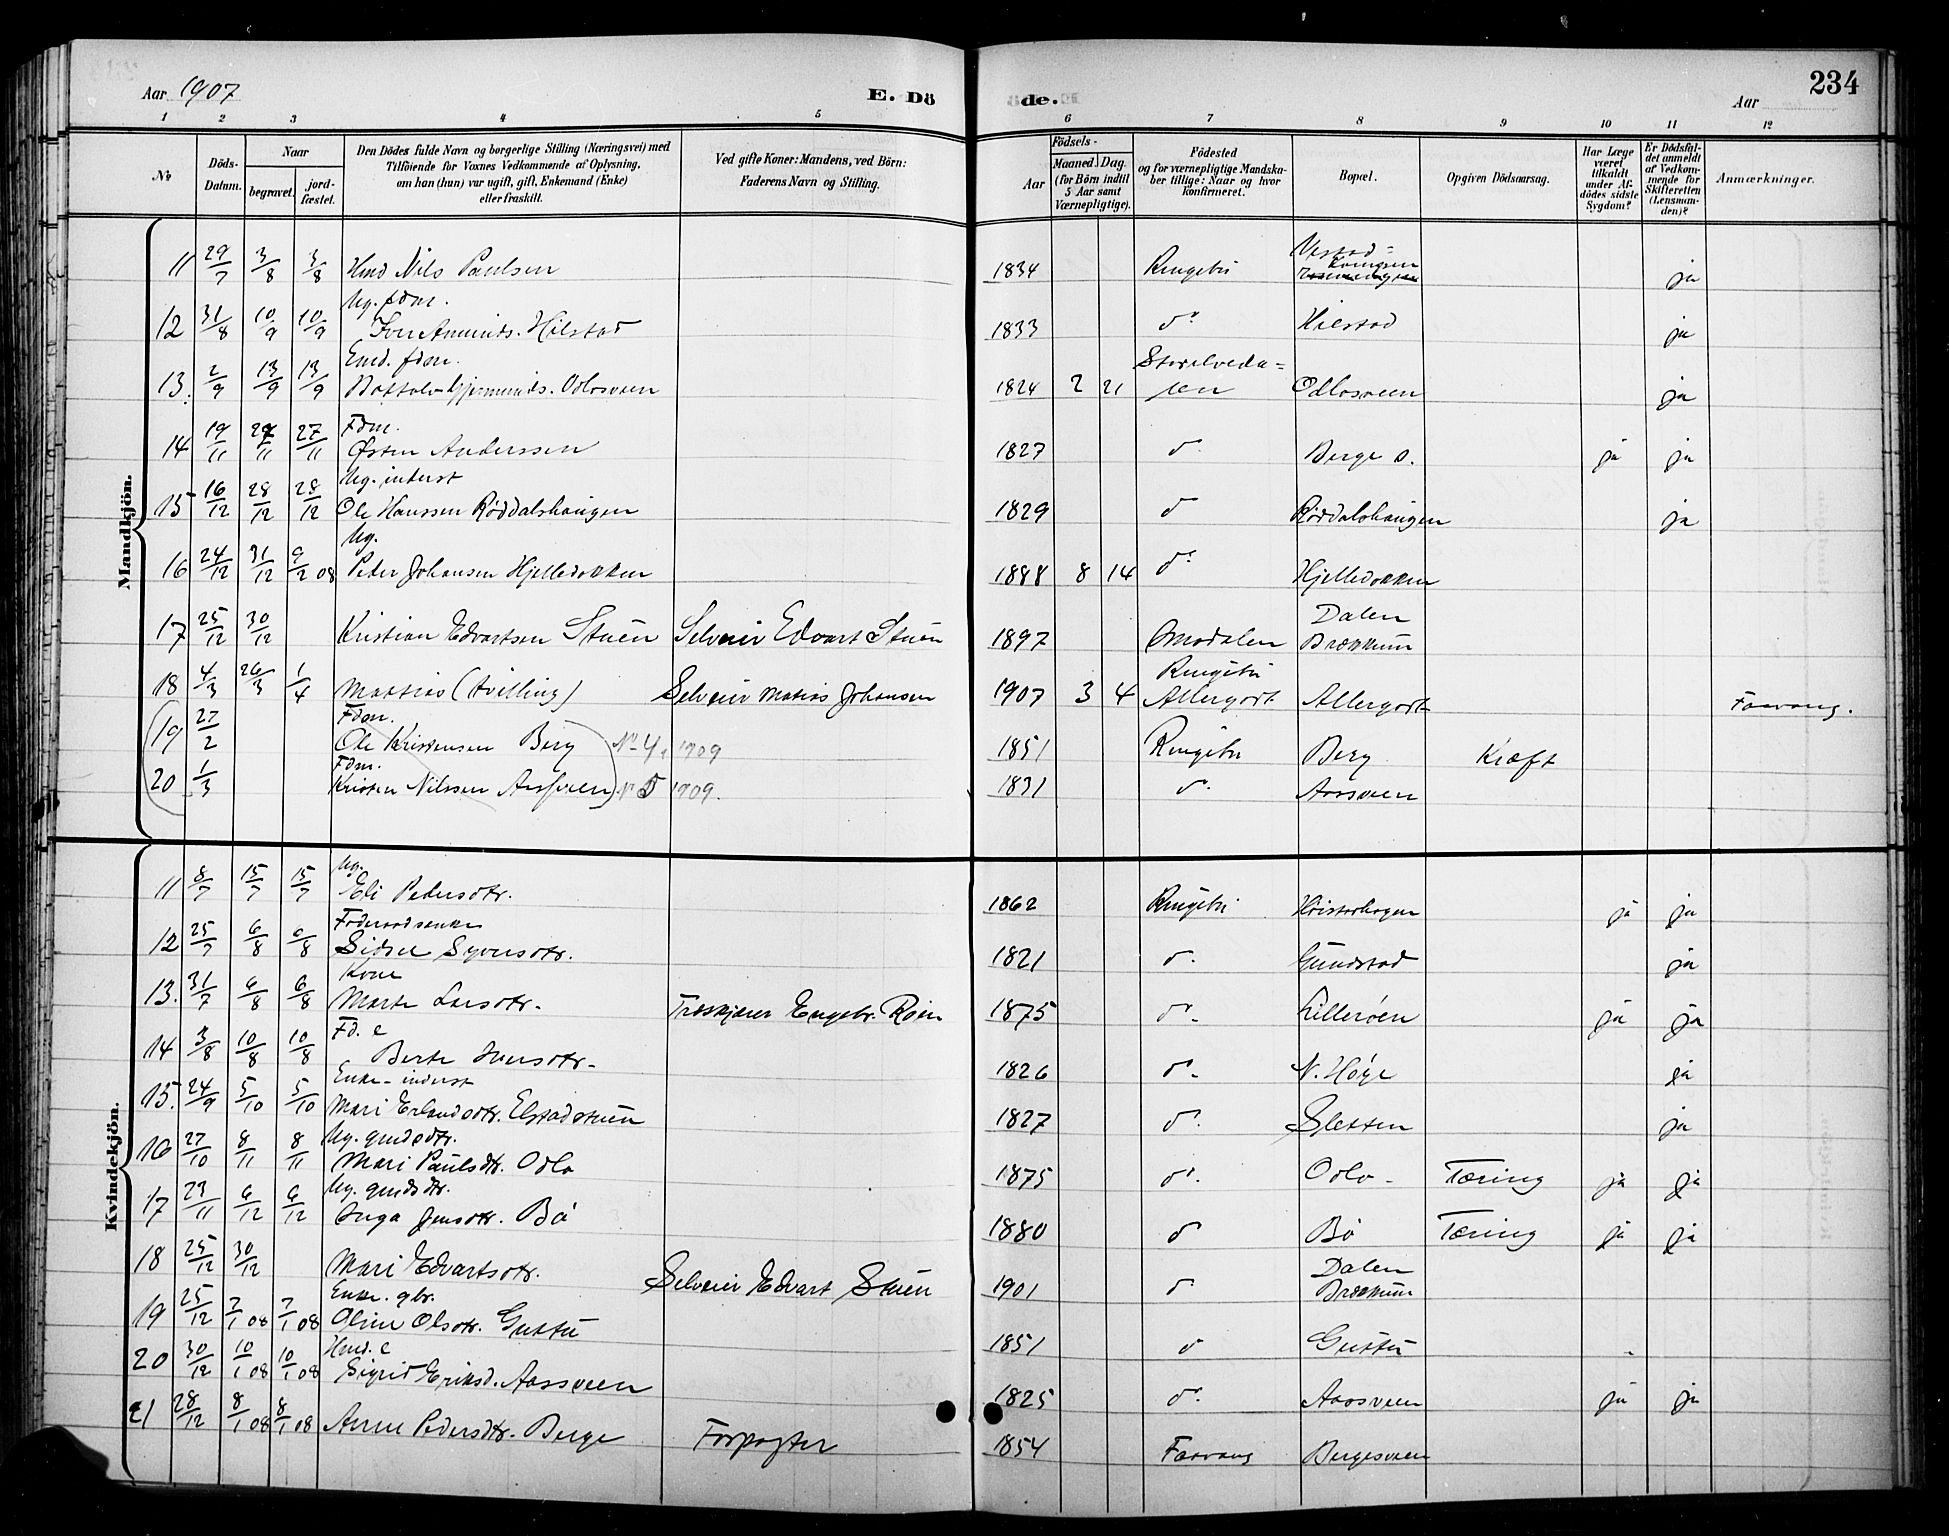 Aar 1907
E. Dö
de.
Aar
234
1 2 3 4 5 6 7 8 9 10 11 12
№
Döds-Datum.
Naar
begravet.
jord-fæstet.
Den Dödes fulde Navn og borgerlige Stilling (Næringsvei) med
Tilföiende for Voxnes Vedkommende af Oplysning,
om han (hun) var ugift, gift, Enkemand (Enke)
eller fraskilt.
Ved gifte Koner: Mandens, ved Börn:
Faderens Navn og Stilling.
Födsels-
Aar
Maaned. Dag.
(for Börn indtil
5 Aar samt
Værnepligtige).
Födested
og for værnepligtige Mandska-
ber tillige: Naar og hvor
konfirmeret.
Bopæl.
Opgiven Dödsaarsag.
Har Læge
været
tilkaldt
under Af-
dödes sidste
Sygdom?
Er Dödsfal-
det anmeldt
af Vedkom-
mende for
Skifteretten
(Lensman-
den)?
Anmærkninger.
Mandkjön.
11 29/7 3/8 3/8 Hmd Nils Paulsen 1834 Ringebu ja
Ug. fdm.
12 31/8 10/9 10/9 Iver Amunds. Hilstad 1833 do Hilstad ja
Emd. fdm.
13. 2/9 13/9 13/9 Odlosveen 1824 2 21 Storelveda=
len Odlosveen ja
Fdm.
14 19/11 27/11 27/11 Østen Anderssen 1827 do Berge ja ja
Ug. inderst
15 16/12 28/12 28/12 Ole Hanssen Røddalshaugen 1829 do Røddalshaugen ja
Ug.
16 24/12 31/12 9/2 08 Peder Johansen Hjelledokken 1888 8 14 do Hjelledokken
17 25/12 30/12 Kristian Edvartsen Stuen Selveier Edvart Stuen 1897 Dalen
Brækkum
18 4/3 26/3 1/4 Mattias (tvilling) Selveier Matias Johansen 1907 3 4 Ringebu
Allergodt Allergodt Faavang.
Fdm.
(19 27/2 Ole Kristensen Berg No 4, 1909 1851 Ringebu Berg Kræft
Fdm.
20 1/3 Kristen Nilssen Aassveen) No 5 1909. 1831 do Aassveen
Kvindekjön.
Ug.
11 8/7 15/7 15/7 Eli Pedersdtr. 1862 Ringebu ja ja
Føderaadsenke
12 25/7 6/8 6/8 Sidsel Syversdtr. 1821 do Gundstad ja
Kone
13. 31/7 6/8 6/8 Marte Larsdtr. Træskjærer Engebr. Røen 1875 do Lillerøen ja ja
Fd. e
14 3/8 10/8 10/8 Berte Iversdtr. 1826 do N. Høye ja
Enke-inderst
15. 24/9 5/10 5/10 Mari Erlandsdtr. Elstadstuen 1827 do Sletten ja
Ug. gmdsdtr.
16 27/10 8/11 8/11 Mari Paulsdtr. Odlo 1875 do Odlo Tæring ja ja
Ug. gmdsdtr.
17 23/11 6/12 6/12 Inga Jensdtr. Bø 1880 do Bø Tæring ja ja
18 25/12 30/12 Mari Edvartsdtr. Selveier Edvart Stuen 1901 do Dalen
Brækkum
Enke. gbr.
19 25/12 7/1 08 7/1 08 Oline Olsdtr. Guttu 1851 do Guttu
Hmd. e
20 30/12 10/1 08 10/1 08 Sigrid Eriksd. Aassveen 1825 do Aassveen ja ja
21 28/12 8/1 08 8/1 08 Anne Pedersdtr. Berge Forpagter 1854 Faavang Bergesveen